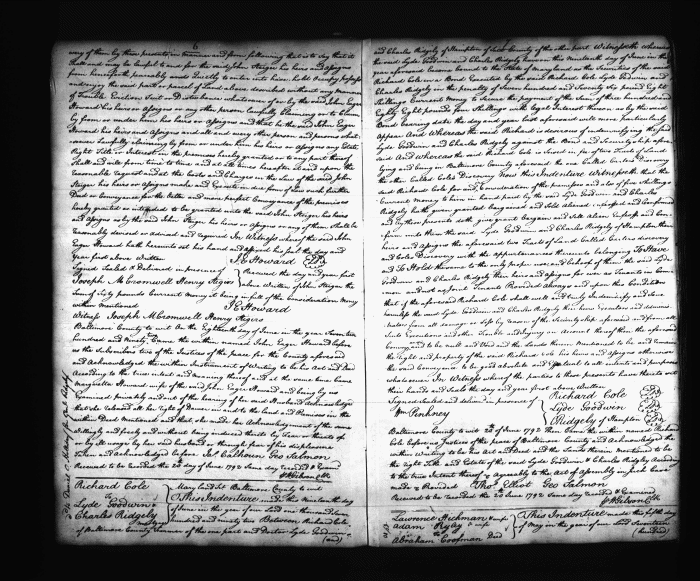 6
many of them by these presents in manner and form following that is to say that it
shall and may be lawful to and for the said John Steiger his heirs and Assigns
from henceforth peaceably and Quietly to enter into have hold Occupy possess
and enjoy the said part or parcel of Land above described without any manner
of Trouble Eviction Suit or Disturbance whatsoever of or by the said John Eager
Howard his heirs or Assigns or any other person lawfully claiming or to claim
by from or under him his heirs or Assigns and that he the said John Eager
Howard his heirs and Assigns and all and every other person and persons what
soever Lawfully claiming by from or under him his heirs or Assigns any Estate
Right Title or Interest in the premises hereby granted or to any part thereof
shall and will from time to time and at all times hereafter at and upon the
reasonable request and at the costs and Charges in the Law of the said John
Steiger his heirs or Assigns make and Execute in due form of Law such further
Deed or Conveyance for the better and more perfect Conveyance of the premises
hereby granted or intended to be granted unto the said John Steiger his heirs
and Assigns as by the said John Steiger his heirs or Assigns or any of them shall be
reasonably devised or advised and required In Witness whereof the said John
Eager Howard hath hereunto set his hand and affixed his seal the day and
Year first above Written
J E Howard
Signed Sealed & Delivered in presence of
Joseph McCromwell Henry Rogers
Received the day and year first
above Written of John Steiger the
Sum of sixty pounds Current money it being in full of the consideration Money
within mentioned
J E Howard
Witness Joseph McCromwell Henry Rogers
Baltimore County to wit On the Eighteenth day of June in the year Seventeen
hundred and Ninety Came the within named John Eager Howard before
us the Subscribers two of the Justices of the peace for the County aforesaid
and Acknowledged the within Instrument of Writing to be his Act and Deed
According to the true intent and meaning thereof and at the same time Came
Margaretta Howard wife of the said John Eager Howard and being by us
Examined privately and out of the hearing of her said Husband Acknowledged
that she released all her right of Dower in and to the land and Premises in the
within Deed Mentioned and that she made her Acknowledgment of the same
Willingly and freely and without being induced thereto by Fear or threats of
or by Ill usage by her said husband or through fear of his displeasure
Taken and Acknowledged before Js. Calhoun Geo Salmon
Received to be recorded the 20 day of June 1792 Same day recorded & Examd
Wm Gibson Clk
Richard Cole
To
Lyde Goodwin &
Charles Ridgely
Maryland Sst Baltimore County to wit
This Indenture made this Nineteenth day
of June in the year of our Lord one thousand seven
hundred and ninety two Between Richard Cole
of Baltimore County of the one part and Doctor Lyde Goodwin
(and)
and Charles Ridgely of Hampton of said County of the other part Witnesseth whereas
the said Lyde Goodwin and Charles Ridgely have on this Nineteenth day of June in the
year aforesaid become bound to the State of Maryland as the Securities of the said
Richard Cole in a Bond Executed by the said Richard Cole Lyde Goodwin and
Charles Ridgely in the penalty of Seven hundred and Seventy Six pound Eight
Shillings Current Money to secure the payment of the sum of three hundred and
Eighty Eight pounds four shillings with legal Interest thereon as by the said
Bond bearing date the day and year last aforesaid will more particularly
Appear And Whereas the said Richard is desirous of indemnifying the said
Lyde Goodwin and Charles Ridgely against the Bond and Securityship afore
said And Whereas the said Richard Cole is Seized in fee of two Tracts of Land
lying and being in Baltimore County aforesaid the one Called Coles Discovery
the other Called Coles Discovery Now this Indenture Witnesseth that the
said Richard Cole for and in Consideration of the premises and also of five Shillings
Current Money to him in hand paid by the said Lyde Goodwin and Charles
Ridgely hath given granted bargained and Sold Aliened enfeoffed and Confirmed
and by these presents doth give grant bargain and Sell Alien Enfeoff and Con=
firm unto them the said Lyde Goodwin and Charles Ridgely of Hampton their
heirs and Assigns the aforesaid two Tracts of Land Called discovery
and Coles Discovery with the appurtenances thereunto belonging To Have
and To Hold the same to the only proper use and behoof of them the said Lyde
Goodwin and Charles Ridgely their heirs and Assigns for ever as Tenants in Com=
mon and not as Joint Tenants Provided always and upon this Condition
that if the aforesaid Richard Cole shall well and truly Indemnify and save
harmless the said Lyde Goodwin and Charles Ridgely their heirs Executors Adminis=
trators from all damage or loss by reason of the Securityship aforesaid and from all
Suits Executions and other Trouble and Injury on Account thereof then the aforesaid
Conveyance to be null and Void and the Lands therein Mentioned to be and remain
the right and property of the said Richard Cole his heirs and Assigns otherwise
the said Conveyance to be good absolute and Effectual to all intents and purposes
whatsoever In Witness whereof the parties to these presents have thereto set
their hands and seals the day and year first above Written
Signed Sealed and deliverd in presence of
Wm Pinkney
Richard Cole
Lyde Goodwin
C Ridgely of Hampton
Baltimore County to wit 20th of June 1792 Then Came the within named Richard
Cole before us Justices of the peace of Baltimore County and Acknowledged the
within Writing to be his Act and Deed and the Lands therein Mentioned to be
the right Title and Estate of the said Lyde Goodwin and Charles Ridgely According
to the true Intent thereof & Agreeably to the Act of Assembly in such Case
made & Provided Thos Elliott Geo Salmon
Received to be recorded the 20 June 1792 Same day recorded & Examined
Wm Gibson Clk
Lawrence Hickman & wife
Adam Rigley & wife
to
Abraham Coofman Deed
This Indenture made this fifth day
of May in the year of our Lord Seventeen
(hundred)